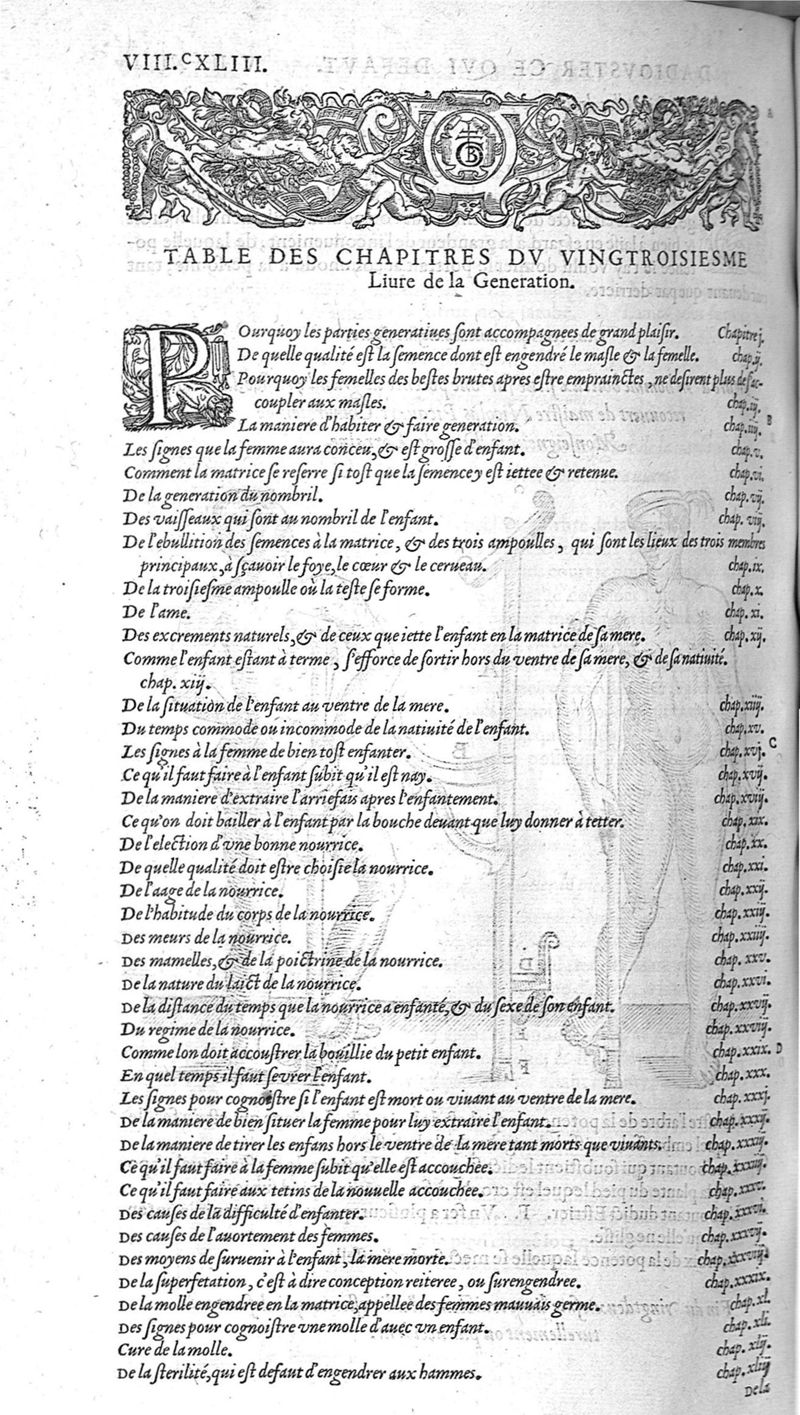 VIII.CXLIII.
TABLE DES CHAPITRES DV VINGTROISIESME
Liure de la Generation.
POurquoy les parties generatiues sont accompagnees de grand plaisir. Chapitre j.
De quelle qualité est la semence dont est engendré le masle & la femelle. chap. ij.
Pourquoy les femelles des bestes brutes apres estre emprainctes, ne desirent plus de s'ac-
coupler aux masles. chap. iij.
La maniere d'habiter & faire generation. chap. iiij. B
Les signes que la femme aura conceu, & est grosse d'enfant. chap. v.
Comment la matrice se reserre si tost que la semence y est iettee & retenue. chap. vi.
De la generation du nombril. chap. vij.
Des vaisseaux qui sont au nombril de l'enfant. chap. viij.
De l'ebullition des semences à la matrice, & des trois ampoulles, qui sont les lieux des trois membres
principaux, à sçauoir le foye, le cœur & le cerueau. chap. ix.
De la troisiesme ampoulle où la teste se forme. chap. x.
De l'ame. chap. xi.
Des excrements naturels, & de ceux que iette l'enfant en la matrice de sa mere. chap. xij.
Comme l'enfant estant à terme, s'efforce de sortir hors du ventre de sa mere, & de sa natiuité.
chap. xiij.
De la situation de l'enfant au ventre de la mere. chap. xiiij.
Du temps commode ou incommode de la natiuité de l'enfant. chap. xv.
Les signes à la femme de bien tost enfanter. chap. xvj. C
Ce qu'il faut faire à l'enfant subit qu'il est nay. chap. xvij.
De la maniere d'extraire l'arriefais apres l'enfantement. chap. xviij.
Ce qu'on doit bailler à l'enfant par la bouche deuant que luy donner à tetter. chap. xix.
De l'election d'vne bonne nourrice. chap. xx.
De quelle qualité doit estre choisie la nourrice. chap. xxi.
De l'aage de la nourrice. chap. xxij.
De l'habitude du corps de la nourrice. chap. xxiij.
Des meurs de la nourrice. chap. xxiiij.
Des mamelles, & de la poictrine de la nourrice. chap. xxv.
De la nature du laict de la nourrice. chap. xxvi.
De la distance du temps que la nourrice a enfanté, & du sexe de son enfant. chap. xxvij.
Du regime de la nourrice. chap. xxviij.
Comme lon doit accoustrer la bouillie du petit enfant. chap. xxix. D
En quel temps il faut sevrer l'enfant. chap. xxx.
Les signes pour cognoistre si l'enfant est mort ou viuant au ventre de la mere. chap. xxxj.
De la maniere de bien situer la femme pour luy extraire l'enfant. chap. xxxij.
De la maniere de tirer les enfans hors le ventre de la mere tant morts que viuants. chap. xxxiij.
Ce qu'il faut faire à la femme subit qu'elle est accouchée. chap. xxxiiij.
Ce qu'il faut faire aux tetins de la nouuelle accouchée. chap. xxxv.
Des causes de la difficulté d'enfanter. chap. xxxvi.
Des causes de l'auortement des femmes. chap. xxxvij.
Des moyens de suruenir à l'enfant, la mere morte. chap. xxxviij.
De la superfetation, c'est à dire conception reiteree, ou surengendree. chap. xxxix.
De la molle engendree en la matrice, appellee des femmes mauuais germe. chap. xl.
Des signes pour cognoistre vne molle d'auec vn enfant. chap. xli.
Cure de la molle. chap. xlij.
De la sterilité, qui est defaut d'engendrer aux hammes. chap. xliij
De la